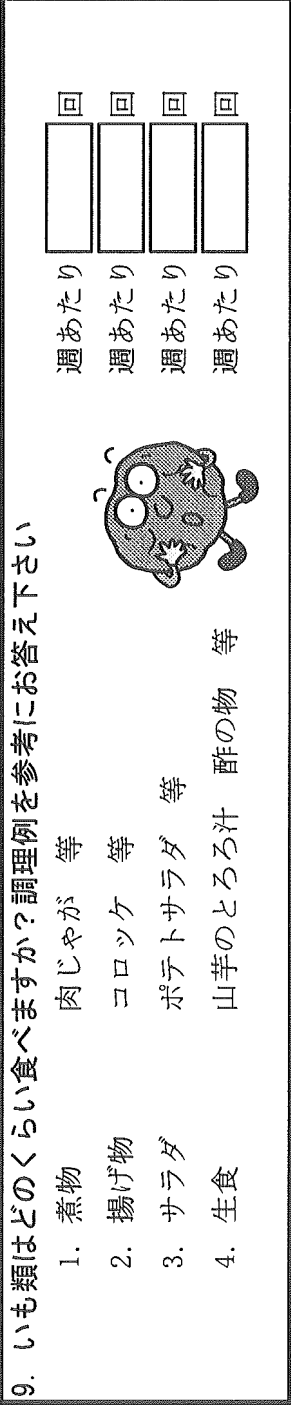 9. いも類はどのくらい食べますか？調理例を参考にお答え下さい
1. 煮物 肉じゃが 等 週あたり 回
2. 揚げ物 コロッケ 等 週あたり 回
3. サラダ ポテトサラダ 等 週あたり 回
4. 生食 山芋のとろろ汁 酢の物 等 週あたり 回